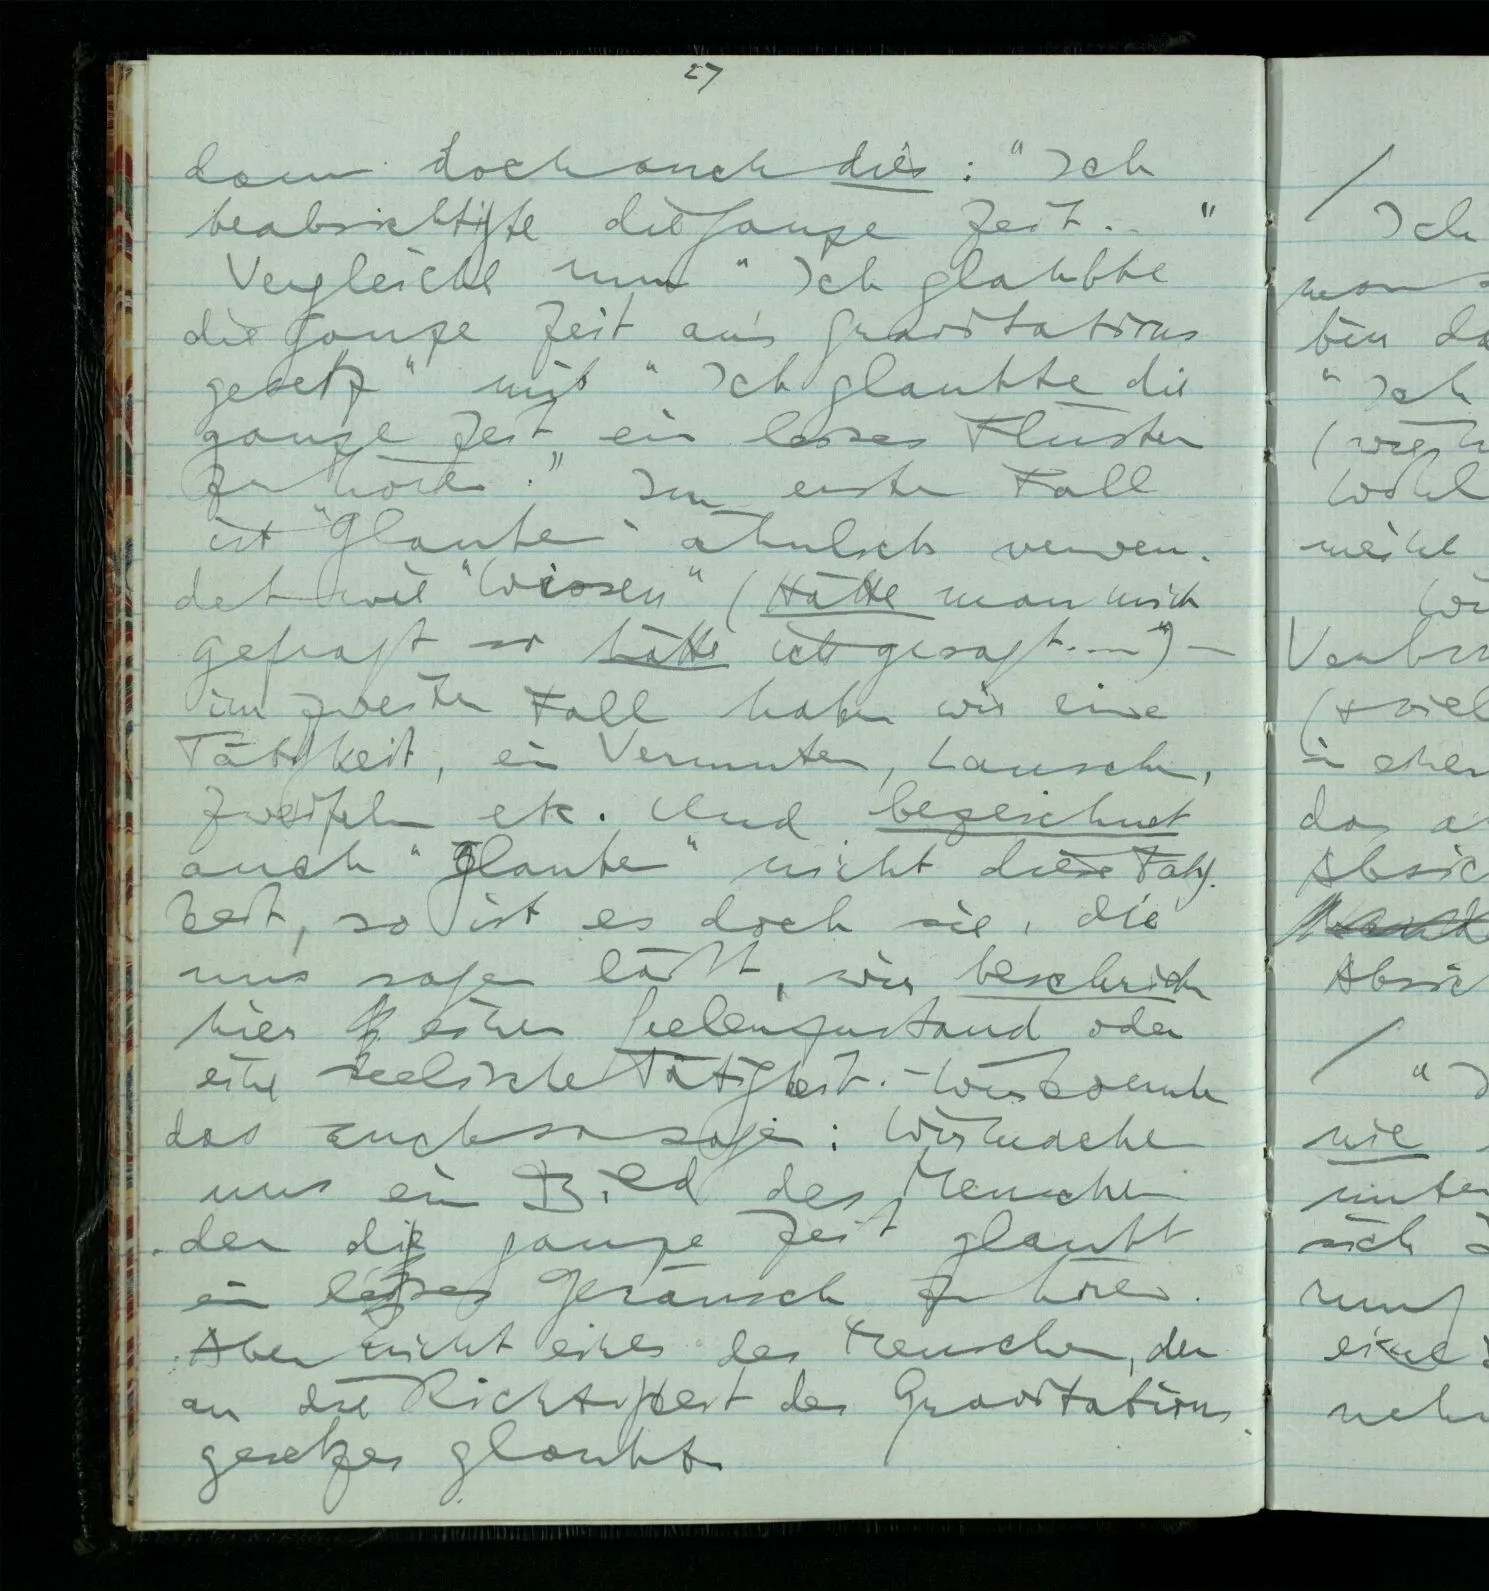 27
dann doch auch dies: "Ich
beabsichtigte die ganze Zeit .. "
Vergleiche nun "Ich glaubte
die ganze Zeit an's Gravitations
gesetz" mit "Ich glaubte die
ganze Zeit ein leises Flüstern
zu hören." Im ersten Fall
ist "Glauben" ähnlich verwen-
det wie "Wissen" (Hätte man mich
gefragt so hätte ich gesagt...") –
im zweiten Fall haben wir eine
Tätigkeit, ein Vermuten, Lauschen,
Zweifeln etc. Und bezeichnet
auch "Glauben" nicht diese Tätig-
keit, so ist es doch sie, die
uns sagen läßt, wir beschrieben
hier einen Seelenzustand oder
eine seelische Tätigkeit. – Wir können
das auch so sagen: Wir machen
uns ein Bild des Menschen
der die ganze Zeit glaubt
ein leises Geräusch zu hören.
Aber nicht eines des Menschen, der
an die Richtigkeit des Gravitations
gesetzes glaubt.
/
Ich
man
bin da
"Ich
Wohl
meine
(+ viel
das
Absic
Absic
/
wie
unter
sich
nehm